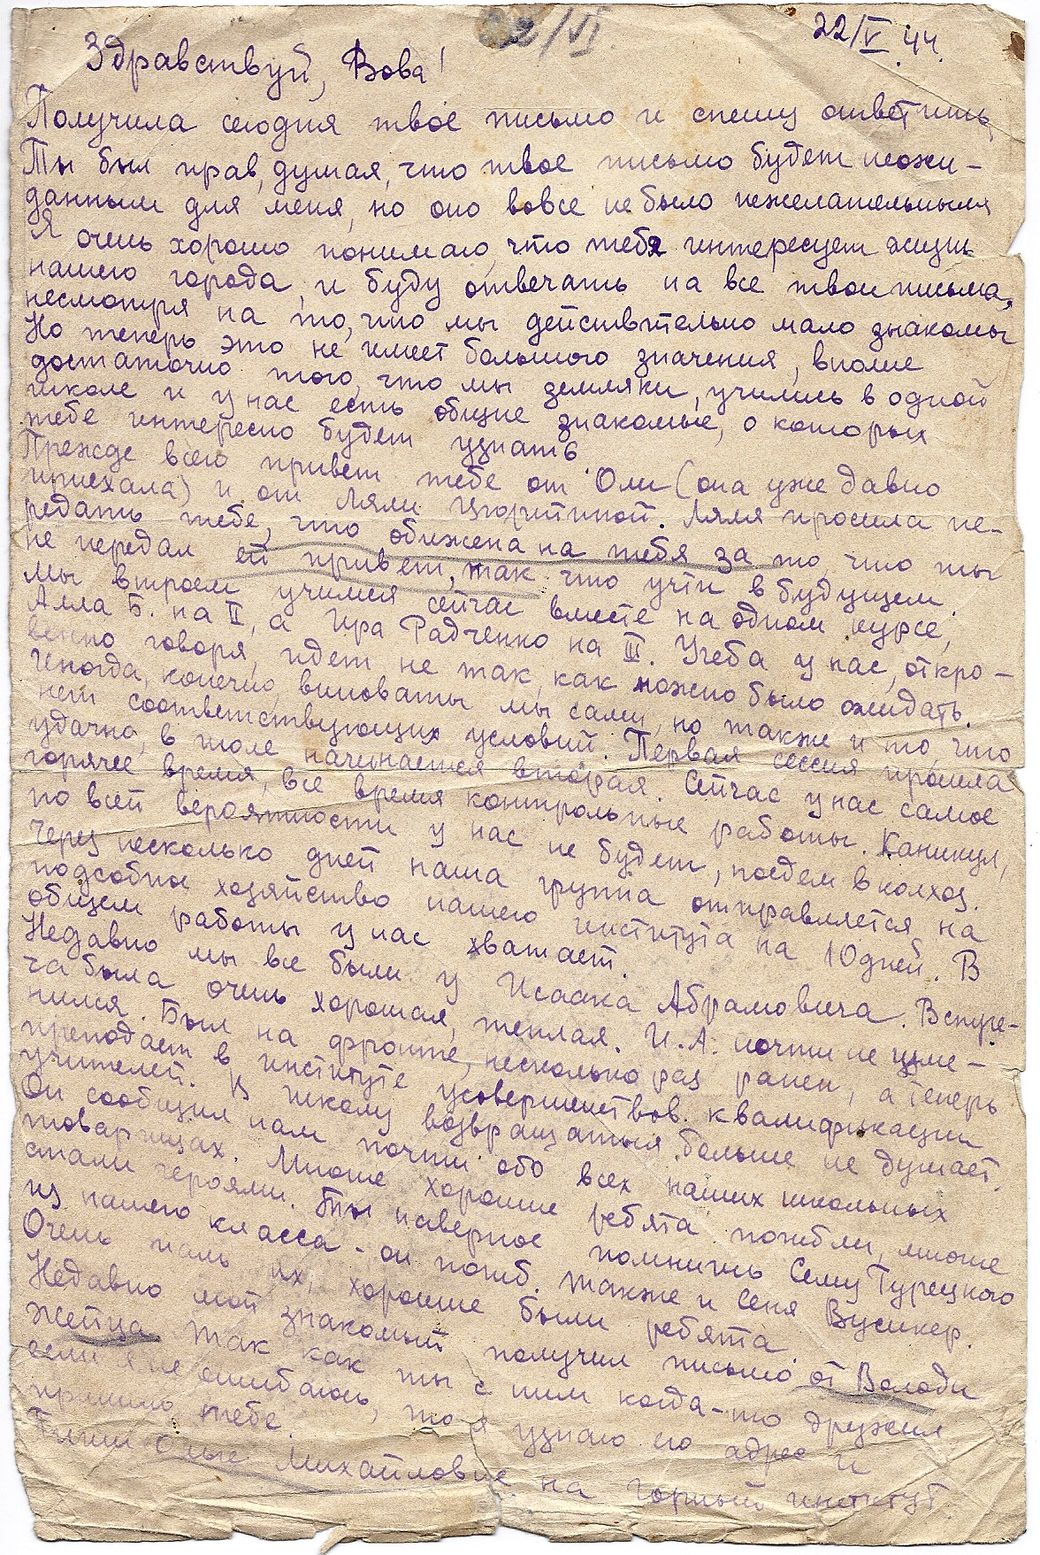 22/VI.
22/V.44.
Здравствуй, Вова!
Получила сегодня твое письмо и спешу ответить.
Ты был прав, думая, что твое письмо будет неожи-
данным для меня, но оно вовсе не было нежелательным
Я очень хорошо понимаю, что тебя интересует жизнь
нашего города, и буду отвечать на все твои письма,
несмотря на то, что мы действительно мало знакомы
Но теперь это не имеет большого значения, вполне
достаточно того, что мы земляки, учились в одной
школе и у нас есть общие знакомые, о которых
тебе интересно будет узнать
Прежде всего привет тебе от Оли (она уже давно
приехала) и от Ляли. Ляля просила пе-
редать тебе, что обижена на тебя за то, что ты
не передал ей привет, так что учти в будущем.
Мы втроем учимся сейчас вместе на одном курсе,
Алла Б. на II, а Ира Радченко на III. Учеба у нас, откро-
венно говоря, идет не так, как можно было ожидать.
Иногда, конечно, виноваты мы сами, но также и то, что
нет соответствующих условий. Первая сессия прошла
удачно, в июле начинается вторая. Сейчас у нас самое
горячее время, все время контрольные работы. Каникул,
по всей вероятности у нас не будет, поедем в колхоз.
Через несколько дней наша группа отправляется на
подсобное хозяйство нашего института на 10 дней. В
общем работы у нас хватает.
Недавно мы все были у Исаака Абрамовича. Встре-
ча была очень хорошая, теплая. И.А. почти не изме-
нился. Был на фронте, несколько раз ранен, а теперь
преподает в институте усовершенствов. квалификации
учителей. В школу возвращаться больше не думает.
Он сообщил нам почти обо всех наших школьных
товарищах. Многие хорошие ребята погибли, многие
стали героями. Ты наверное помнишь Сему Турецкого
из нашего класса - он погиб. также и Сеня Вусикер.
Очень жаль их, хорошие были ребята.
Недавно мой знакомый получил письмо от Володи
Жейца. Так как ты с ним когда-то дружил
если я не ошибаюсь, то я узнаю его адрес и
пришлю тебе.
Пиши Ольге Михайловне на горный институт.